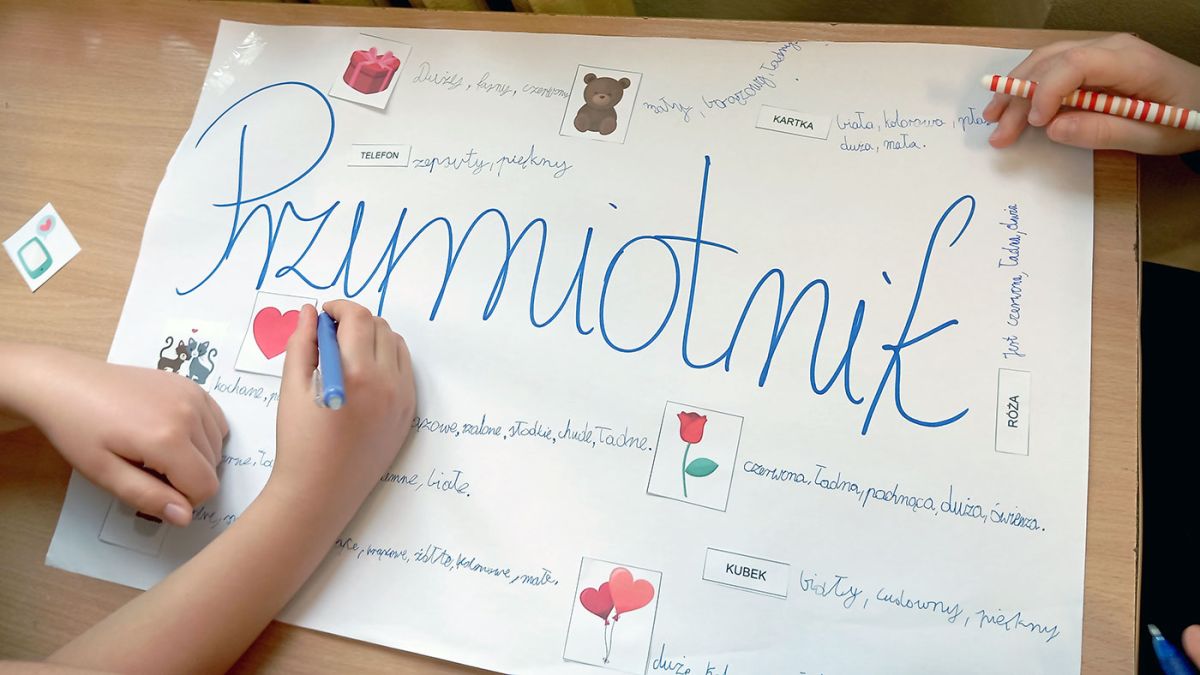 Duży, fajny,
mały, brązowy, ładny.
KARTKA
biała, kolorowa,
duża, mała.
TELEFON
zepsuty, piękny
Przymiotnik
Jest czerwona, ładna, duża
RÓŻA
kochane,
słodkie, chude, ładne.
czerwona, ładna, pachnąca, duża, świeża.
białe.
brązowe, żółte, kolorowe, małe.
KUBEK
biały, cudowny, piękny
duże,